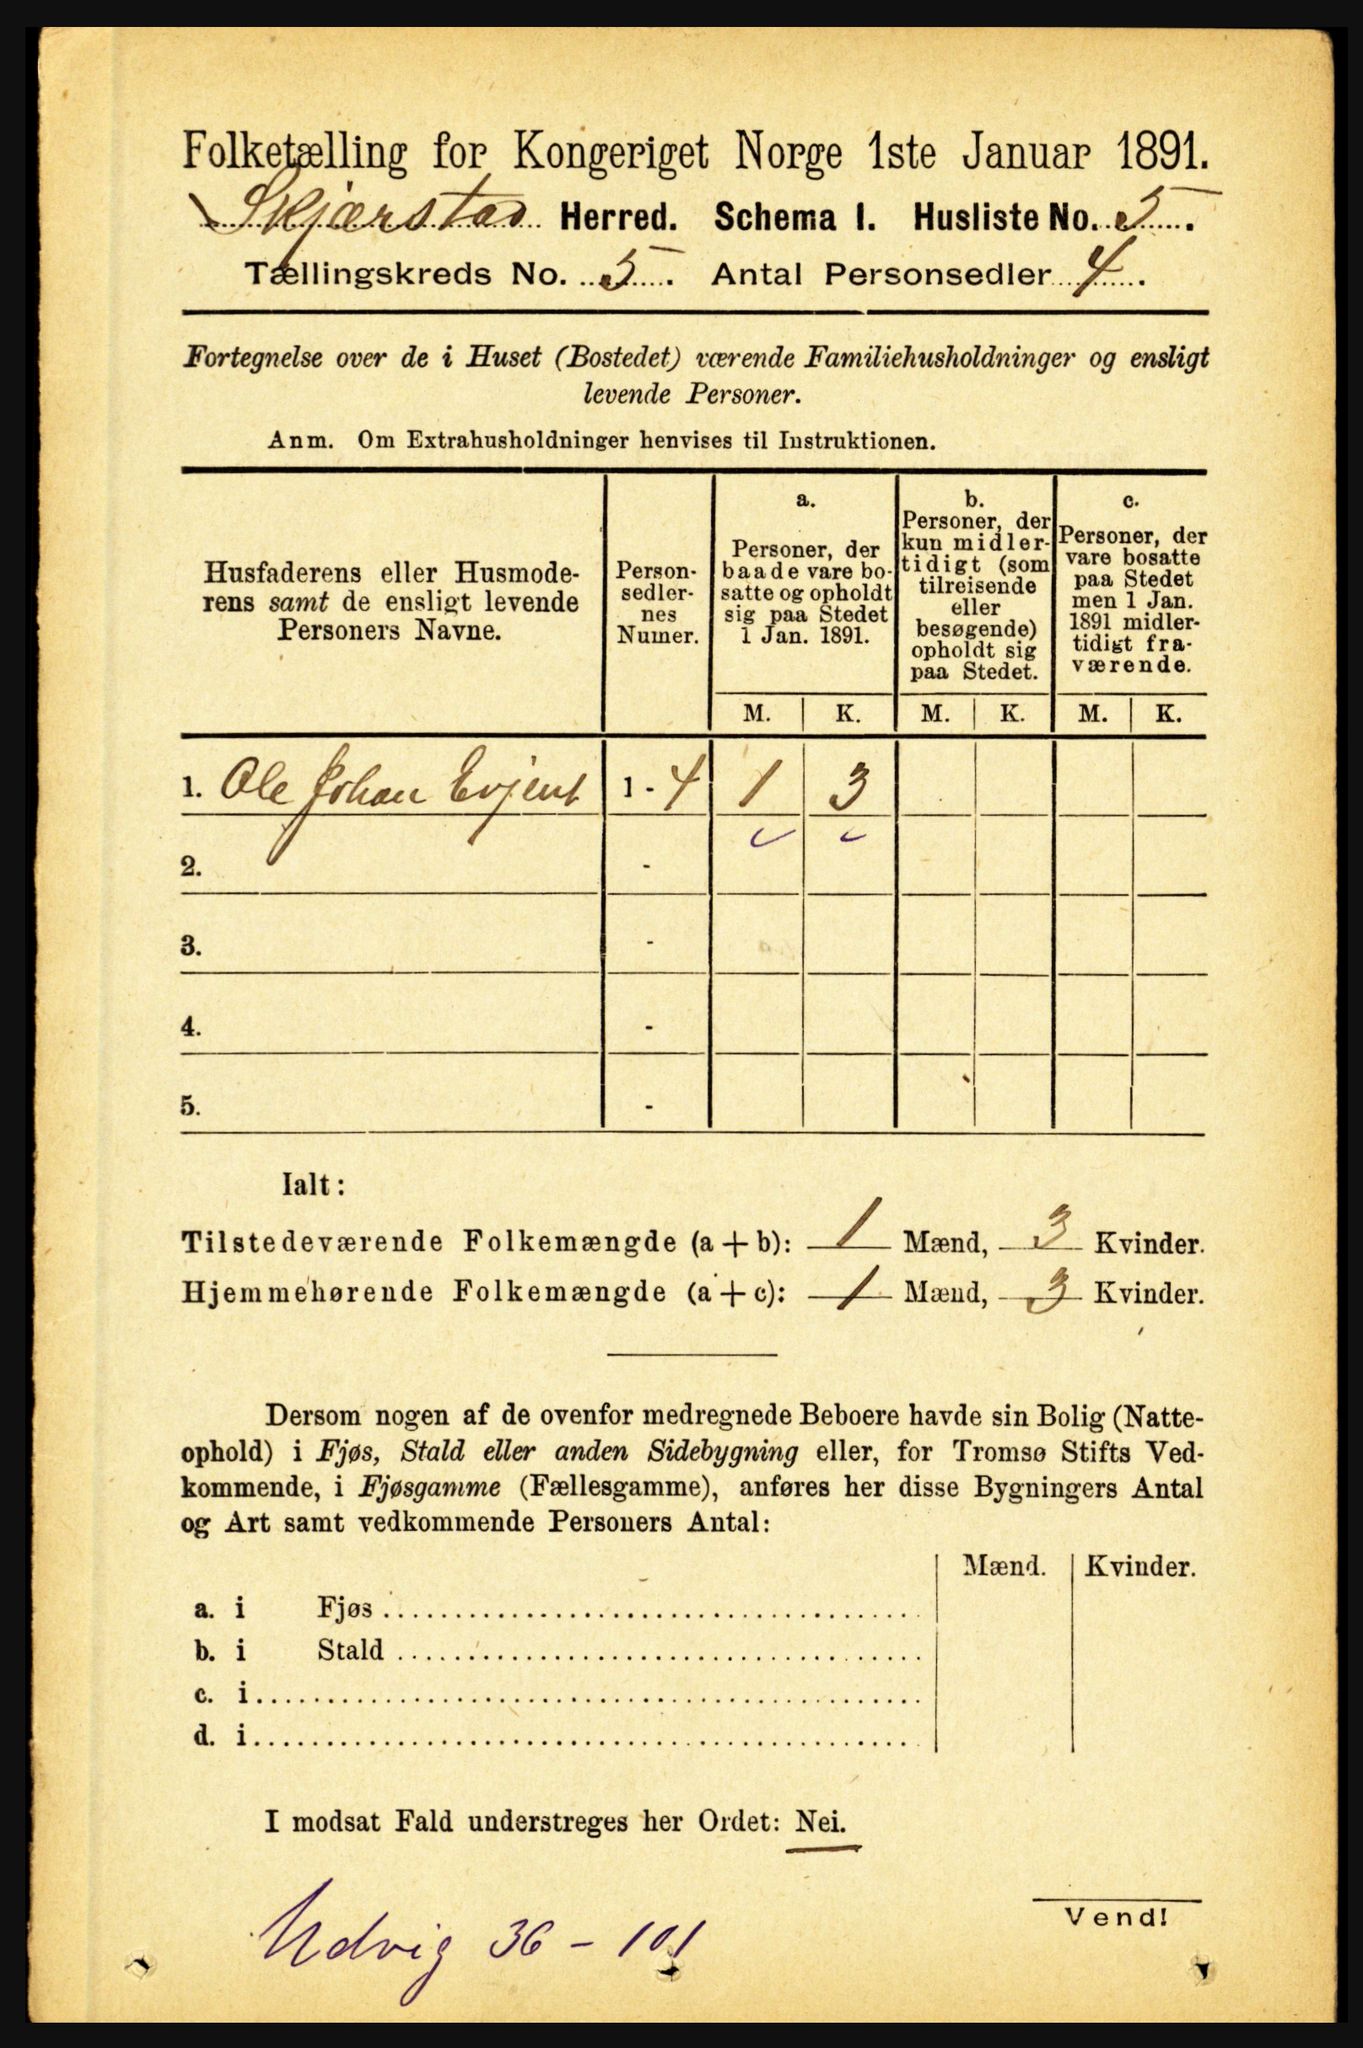 Folketælling for Kongeriget Norge 1ste Januar 1891.
Skjærstad Herred. Schema I. Husliste No. 5.
Tællingskreds No. 5. Antal Personsedler 4.
Fortegnelse over de i Huset (Bostedet) værende Familiehusholdninger og ensligt
levende Personer.
Anm. Om Extrahusholdninger henvises til Instruktionen.
Husfaderens eller Husmode-
rens samt de ensligt levende
Personers Navne.
Person-
sedler-
nes
Numer.
a.
Personer, der
baade vare bo-
satte og opholdt
sig paa Stedet
1 Jan. 1891.
b.
Personer, der
kun midler-
tidigt (som
tilreisende
eller
besøgende)
opholdt sig
paa Stedet.
c.
Personer, der
vare bosatte
paa Stedet
men 1 Jan.
1891 midler-
tidigt fra-
værende.
M. K. M. K. M. K.
1. Ole Johan Evjent 1 - 4 1 3
2. -
3. -
4. -
5. -
Ialt:
Tilstedeværende Folkemængde (a + b): 1 Mænd, 3 Kvinder.
Hjemmehørende Folkemængde (a + c): 1 Mænd, 3 Kvinder.
Dersom nogen af de ovenfor medregnede Beboere havde sin Bolig (Natte-
ophold) i Fjøs, Stald eller anden Sidebygning eller, for Tromsø Stifts Ved-
kommende, i Fjøsgamme (Fællesgamme), anføres her disse Bygningers Antal
og Art samt vedkommende Personers Antal:
Mænd. Kvinder.
a. i Fjøs
b. i Stald
c. i
d. i
I modsat Fald understreges her Ordet: Nei.
Vend!
Udvig 36 - 101